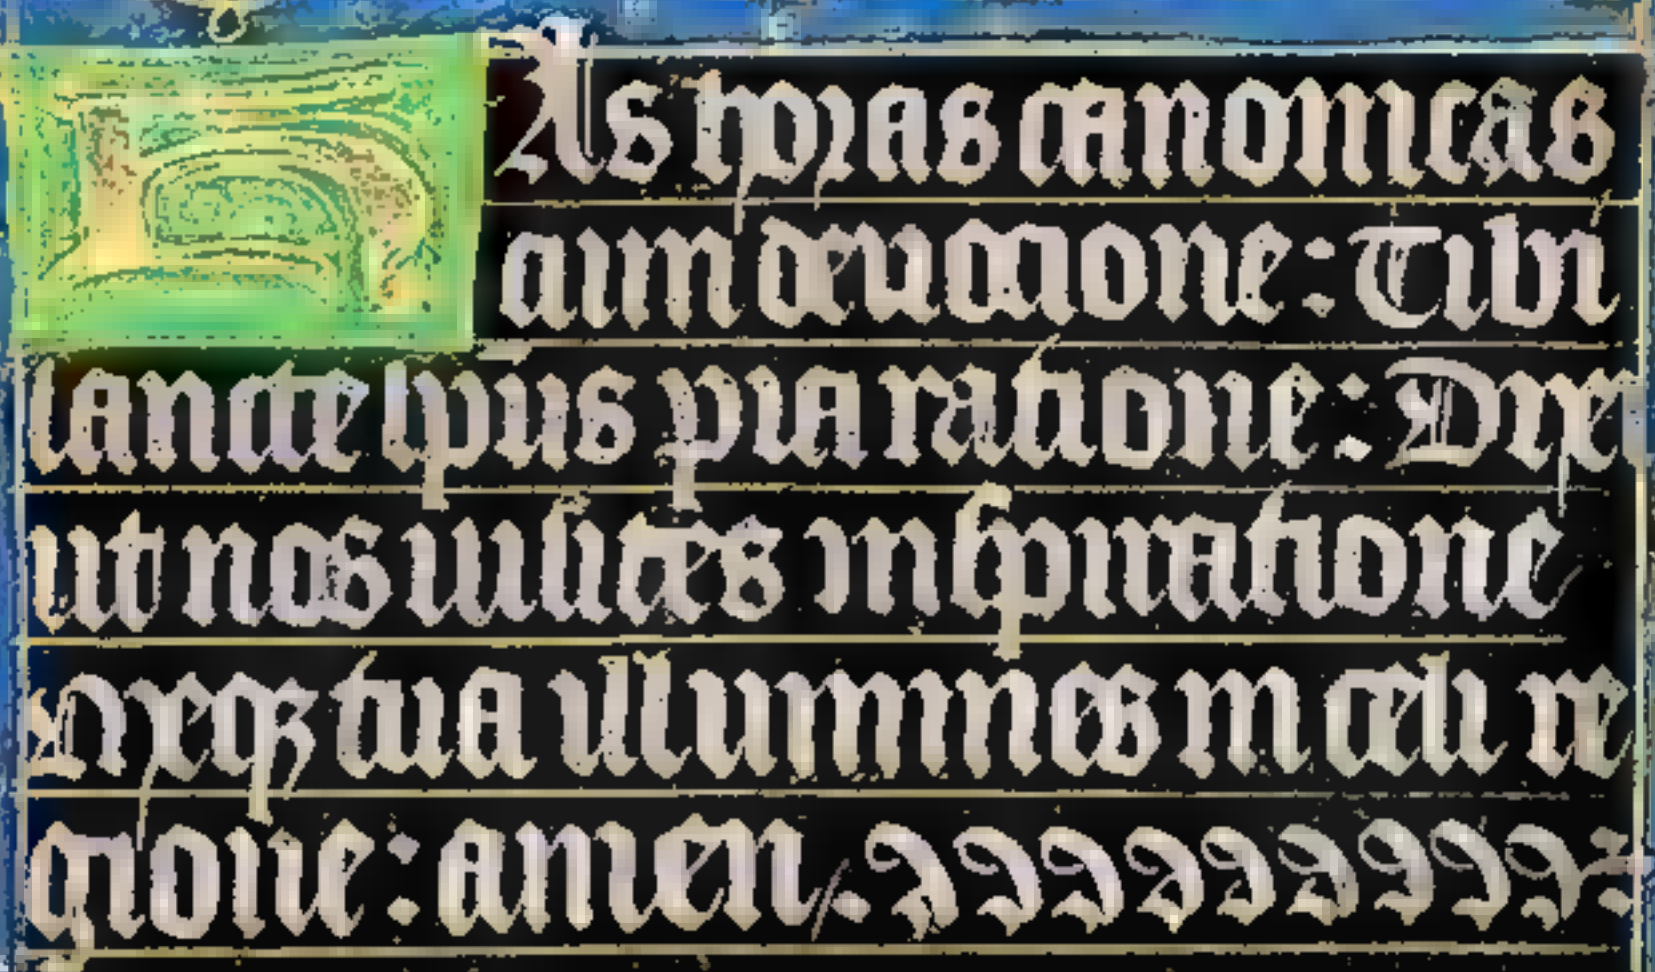 HAs horas canonicas
cum deuocione: Tibi
sancte spūs pia ratione:
ut nos uisites inspiratione
tua illumines in celi re
gione: amen